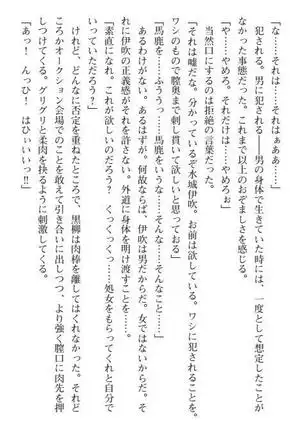 「な……それは……それはぁああ」
　犯される。男に犯される――男の身体で生きていた時には、一度として想定したことが
なかった事態だった。これまで以上のおぞましさを感じる。
「や……やめろ。それだけは……やめろぉ」
　当然口にするのは拒絶の言葉だった。
「それは嘘だな。分かっているぞ水城伊吹。お前は欲している。ワシに犯されることを。
ワシのもので膣奥まで刺し貫いて欲しいと思っておる」
「馬鹿を……ふううっ……馬鹿をいうな……そんな……そんなこと……」
　あるわけがない。あるはずが。何故ならば、伊吹は男だからだ。女ではないからだ。そ
れに伊吹の正義感がそれを許さない。外道に身体を明け渡すことを……。
「素直になれ。これが欲しいのだろう？　くっくっくっ……処女をもらってくれと自分で
いっていただろう？」
　けれど、どんなに否定を重ねたところで、黒柳は肉棒を離してはくれなかった。それど
ころかオークション会場でのことを敢えて引き合いに出しつつ、より強く膣口に肉先を押
しつけてくる。グリグリと柔肉を抉るように刺激してくる。
「あっ！　んっひ！　はひぃいいっ!!」